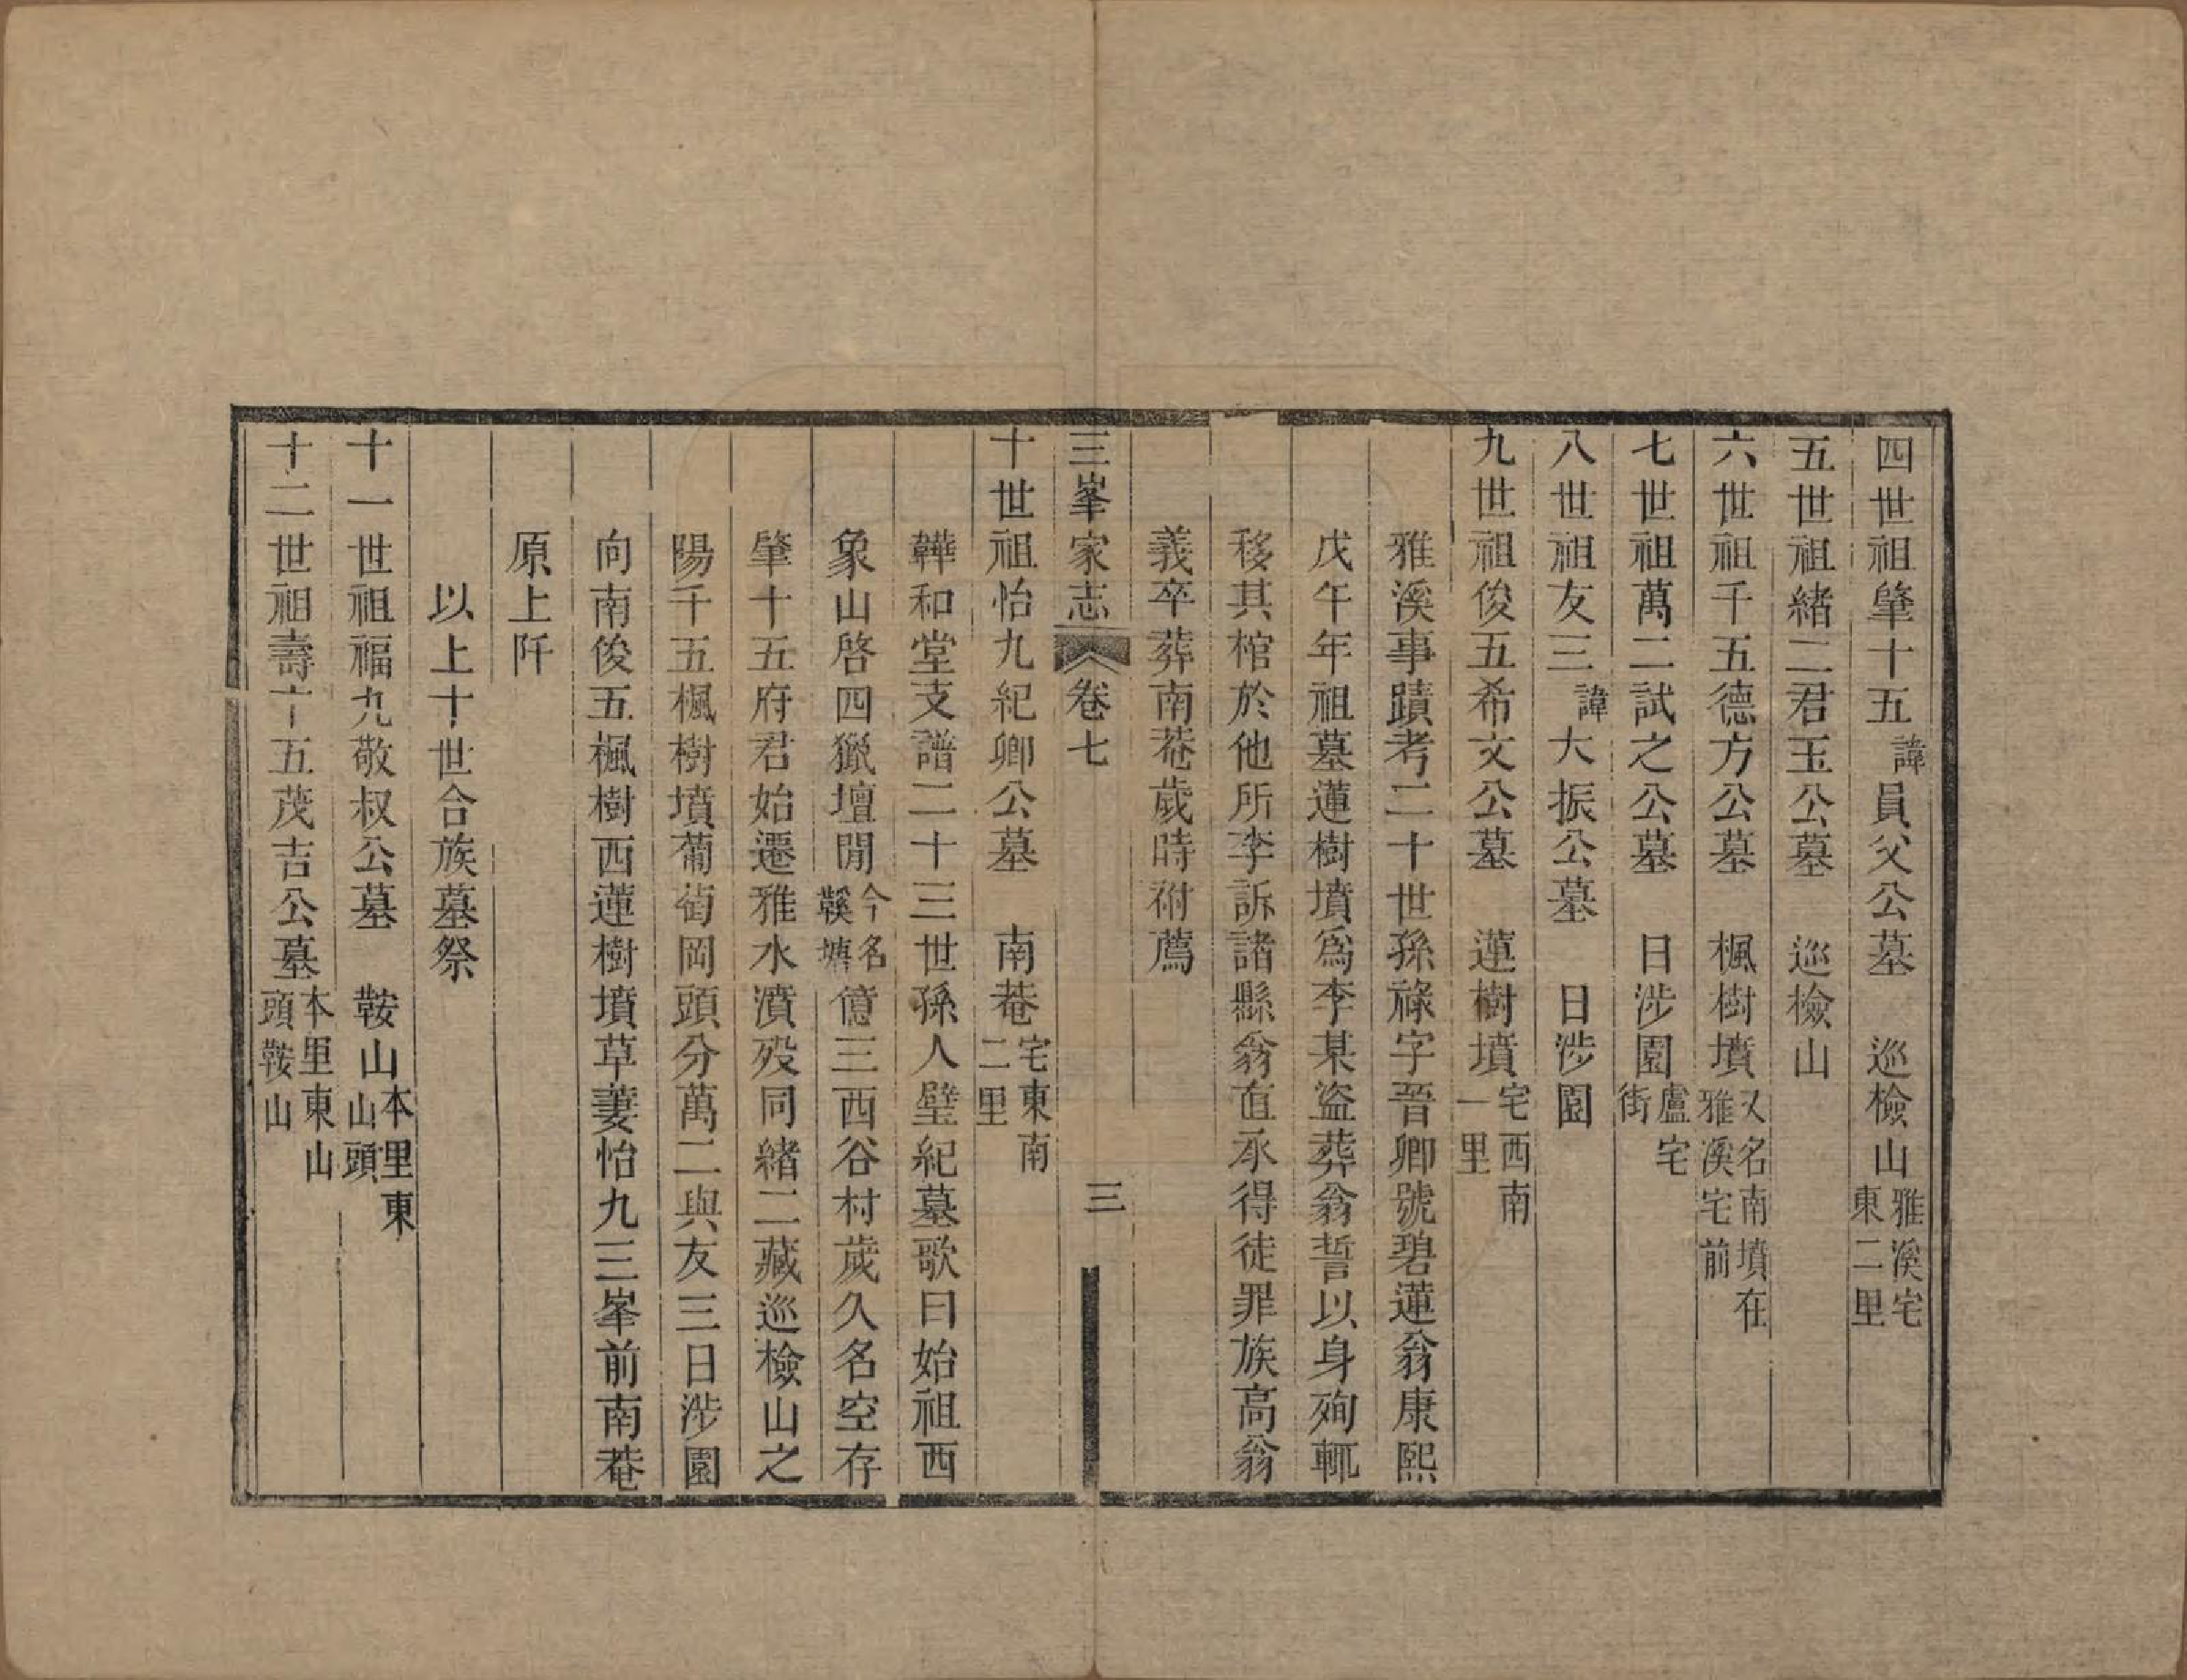 四世祖肇十五諱員父公墓　巡檢山雅溪宅東二里
五世祖緒二君玉公墓　巡檢山
六世祖千五德方公墓　楓樹墳又名南墳在雅溪宅前
七世祖萬二試之公墓　日涉園盧宅街
八世祖友三諱大振公墓　日涉園
九世祖俊五希文公墓　蓮樹墳宅西南一里
雅溪事蹟考二十世孫祿字晉卿號碧蓮翁康熙
戊午年祖墓蓮樹墳爲李某盜葬翁誓以身殉輒
移其棺於他所李訴諸縣翁直承得徒罪族高翁
義卒葬南菴歲時祔薦
三峯家志　卷七　三
十世祖怡九紀卿公墓　南菴宅東南二里
韡和堂支譜二十三世孫人壁紀墓歌曰始祖西
象山啓四獵壇閒今名鞵塘億三西谷村歲久名空存
肇十五府君始遷雅水濆歿同緒二藏巡檢山之
陽千五楓樹墳葡萄岡頭分萬二與友三日涉園
向南俊五楓樹西蓮樹墳草萋怡九三峯前南菴
原上阡
以上十世合族墓祭
十一世祖福九敬叔公墓　鞍山本里東山頭
十二世祖壽十五茂吉公墓本里東山頭鞍山